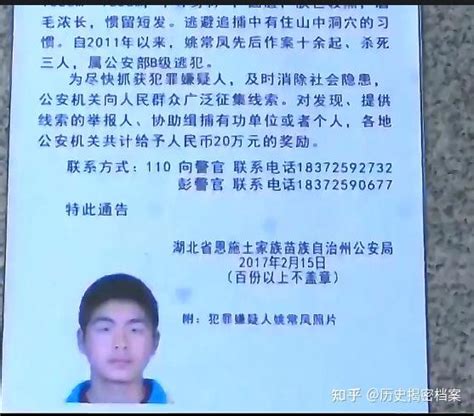 眉毛浓长，惯留短发。逃避追捕中有住山中洞穴的习
惯。自2011年以来，姚常凤先后作案十余起、杀死
三人，属公安部B级逃犯。
为尽快抓获犯罪嫌疑人，及时消除社会隐患，
公安机关向人民群众广泛征集线索。对发现、提供
线索的举报人、协助缉捕有功单位或者个人，各地
公安机关共计给予人民币20万元的奖励。
联系方式：110 向警官 联系电话18372592732
彭警官 联系电话18372590677
特此通告
湖北省恩施土家族苗族自治州公安局
2017年2月15日
（百份以上不盖章）
附：犯罪嫌疑人姚常凤照片
知乎 @历史揭密档案